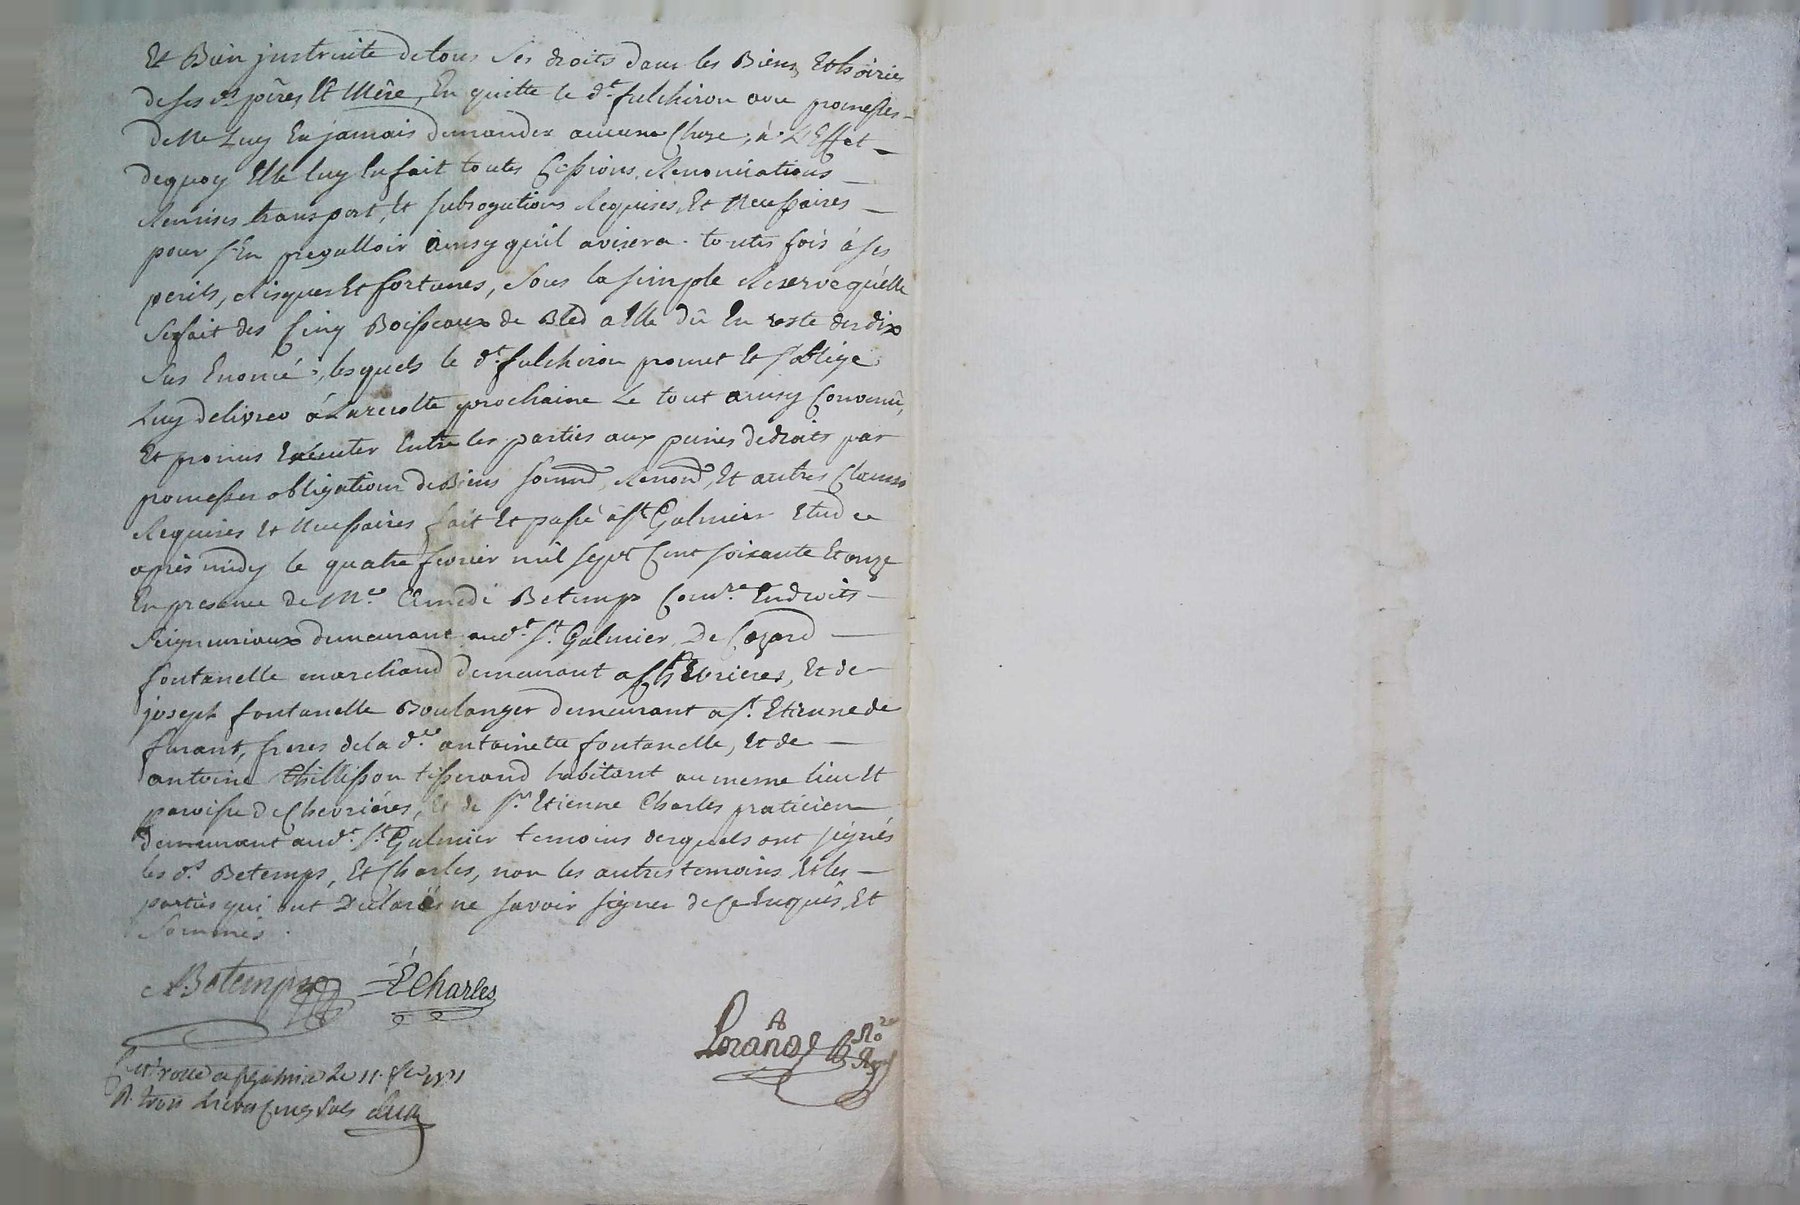 Et Bien justruite de tous ses droits dans les Biens Et hoiries
de ses ds pères Et Mère, En quitte le dt. fulchiron avec promesses
de ne Luy En jamais demander aucune Chose, à L'Effet
dequoy Elle luy En fait toutes Cessions, Renonciations
Remises transport, Et subrogations Requises Et Necessaires
pour s'En prevalloir ainsy qu'il avisera. toutes fois à ses
perils, Risques Et fortunes, sous la simple Reserve qu'elle
se fait des Cinq Boisseaux de Bled a Elle dû En reste des dix
sus Enoncé, lesquels le dt. fulchiron promet Et s'oblige
Luy delivrer à La recolte prochaine Le tout ainsy Convenû,
Et promis Exécuter Entre les parties aux peines de droits par
promesses obligations de Biens soumd. Renond. Et autres Clauses
Requises Et Necessaires fait Et passé à St Galmier Etude
après midy le quatre fevrier mil sept Cent soixante Et onze
En presence de Me. Amedé Betemps Comre. En droits
seigneuriaux demeurant aud. St. Galmier, De Cezard
fontanelle marchand demeurant a Chevrieres, Et de
joseph fontanelle Boulanger demeurant a St. Etienne de
furant, freres de la de. antoinette fontanelle, Et de
antoine Thillisson tisserand habitant au meme lieu Et
paroisse de Chevriéres, Et de Sr. Etienne Charles praticien
demeurant aud. St. Galmier temoins desquels ont signés
les ds. Betemps, Et Charles, non les autres temoins Et les
parties qui ont Déclarés ne savoir signer de Ce Enquis, Et
Sommés.
A Betemps E Charles
No re
Ry
Controllé a St Galmier Le 11. fer 1771
R. trois Livres Cinq sols